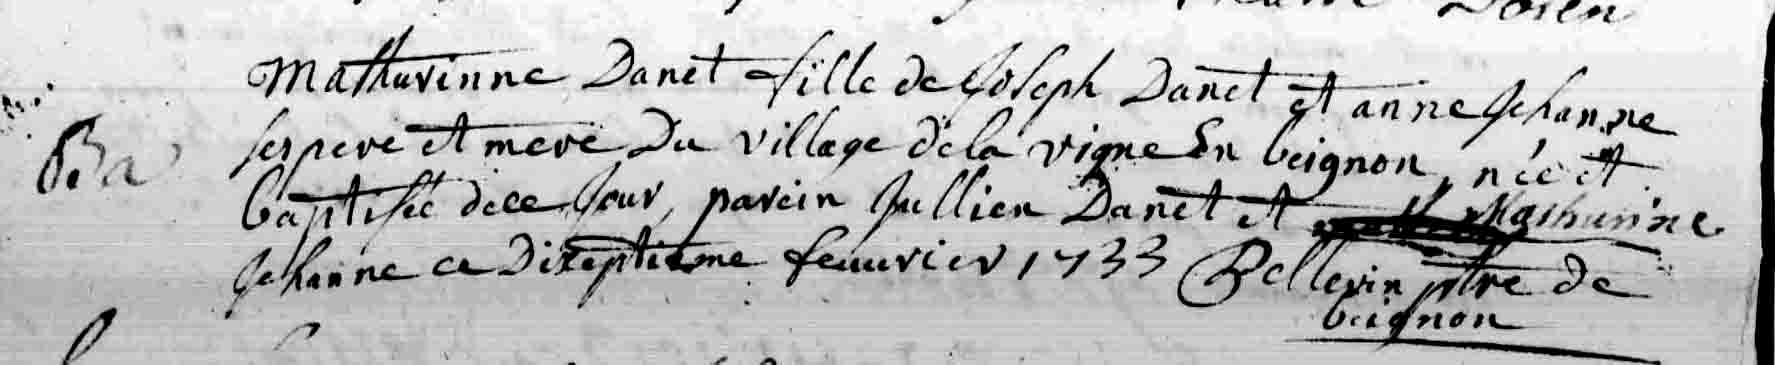 Dosen
Mathurinne Danet fille de Joseph Danet et anne Jehanne
ses pere et mere Du village dela vigne En beignon, née et
Ba
baptiséé dece Jour, parein Jullien Danet et Mathurine
Jehanne ce Dixseptieme feuurier 1733 Bellevin ptre de
beignon